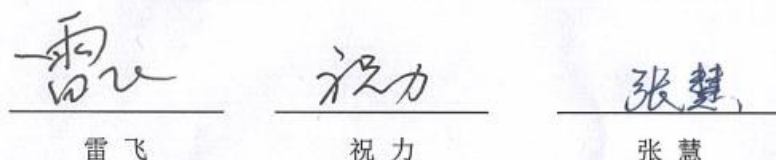 雷飞 祝力 张慧
雷飞 祝力 张慧